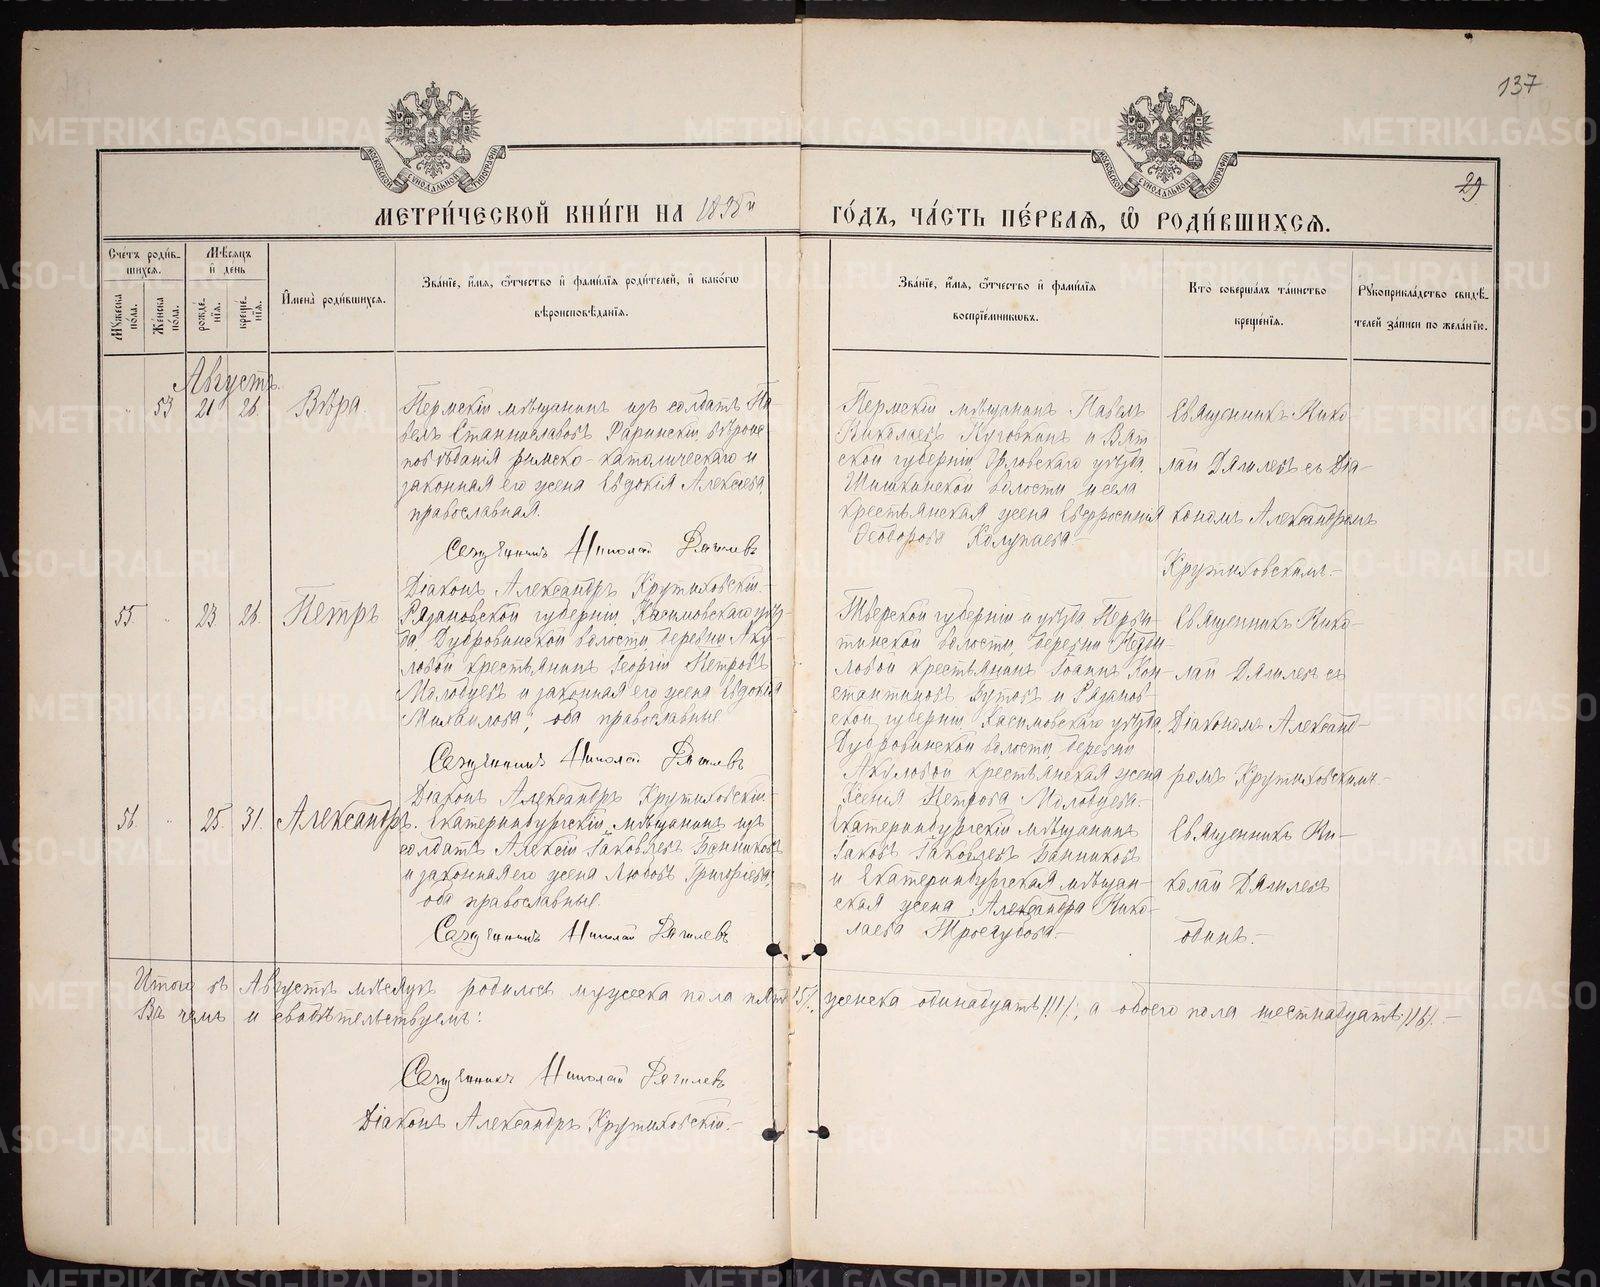 137
29
МЕТРИ́ЧЕСКОЙ КНИ́ГИ НА 1898й
ГО́ДЪ, ЧА́СТЬ ПЕ́РВАЯ, Ѡ РОДИ́ВШИХСЯ.
Сче́тъ роди́в-
шихся.
Мꙋ́жеска по́ла.
Же́нска по́ла.
Мѣ́сяцъ
и҆ день
рожде́-
нїя.
креще́-
нїя.
И҆мена̀ роди́вшихся.
Зва́нїе, и҆́мя, ѻ҆́тчество и҆ фами́лїя роди́телей, и҆ како́гѡ
вѣроисповѣ́данїя.
Зва́нїе, и҆́мя, ѻ҆́тчество и҆ фами́лїя
воспрїе́мникѡвъ.
Кто̀ соверша́лъ та́инство
креще́нїя.
Рꙋкоприкла́дство свидѣ́-
телей за́писи по жела́нїю.
Августъ.
53 21 26. Вѣра.
Пермскій мѣщанинъ изъ солдатъ Па-
велъ Станиславовъ вѣроис-
повѣданія римско-католическаго и
законная его жена Евдокія Алексѣева,
православная.
Священникъ Николай Дягилевъ
Діаконъ Александръ Крутиховскій.
Пермскій мѣщанинъ Павелъ
Николаевъ и Вят-
ской губерніи, Орловскаго уѣзда,
волости и села
крестьянская жена Евфросинія
Ѳеодорова Колупаева.
Священникъ Нико-
лай Дягилевъ съ Діа-
кономъ Александромъ
Крутиховскимъ.
55 " 23 26. Петръ
Рязановской губерніи, Касимовскаго уѣз-
да, Дубровинской волости, деревни Аку-
ловой крестьянинъ Георгій Петровъ
Молодцевъ и законная его жена Евдокія
Михаилова, оба православные
Священникъ Николай Дягилевъ
Діаконъ Александръ Крутиховскій.
Тверской губерніи и уѣзда
волости, деревни
ловой крестьянинъ Іоаннъ Кон-
стантиновъ Бутовъ и Рязанов-
ской губерніи, Касимовскаго уѣзда,
Дубровинской волости, деревни
Акуловой крестьянская жена
Ксенія Петрова Молодцева.
Священникъ Нико-
лай Дягилевъ съ
Діакономъ Александ-
ромъ Крутиховскимъ.
56. " 25. 31. Александръ.
Екатеринбургскій мѣщанинъ изъ
солдатъ Алексій Іаковлевъ Банниковъ
и законная его жена Любовь Григоріева,
оба православные.
Священникъ Николай Дягилевъ
Екатеринбургскій мѣщанинъ
Іаковъ Іаковлевъ Банниковъ
и Екатеринбургская мѣщан-
ская жена Александра Нико-
лаева Трегубова.
Священникъ Ни-
колай Дягилевъ
одинъ.
Итого въ Августѣ мѣсяцѣ родилось мужеска пола пять /5/, женска одинадцать /11/, а обоего пола шестнадцать /16/.
Въ чемъ и свидѣтельствуемъ:
Священникъ Николай Дягилевъ
Діаконъ Александръ Крутиховскій.
METRIKI.GASO-URAL.RU